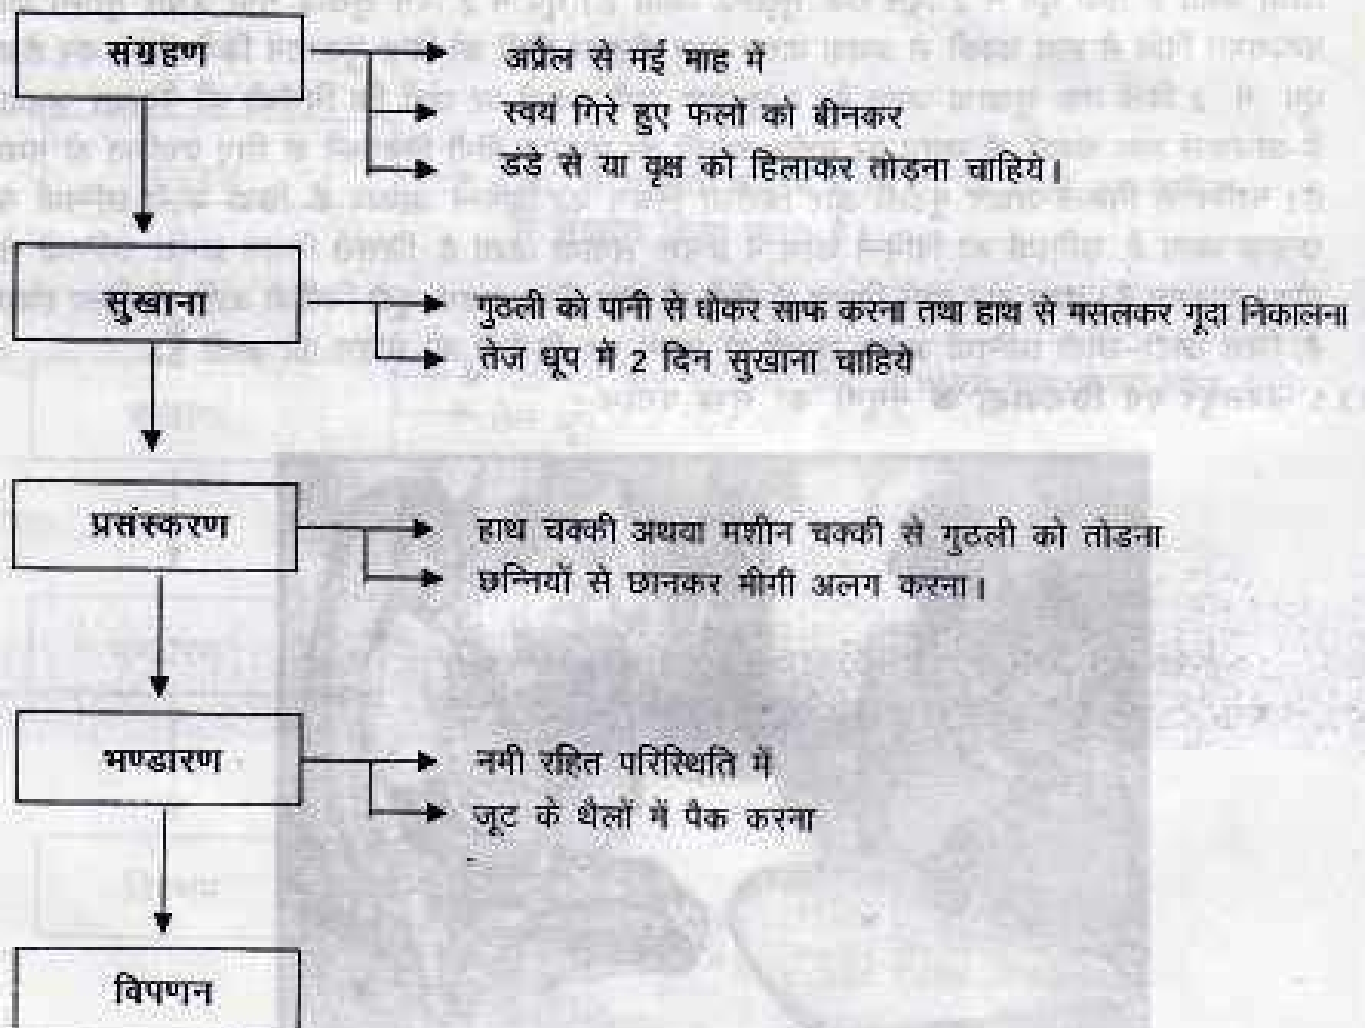 संग्रहण
अप्रैल से मई माह में
स्वयं गिरे हुए फलों को बीनकर
डंडे से या वृक्ष को हिलाकर तोड़ना चाहिये।
सुखाना
गुठली को पानी से धोकर साफ करना तथा हाथ से मसलकर गूदा निकालना
तेज धूप में 2 दिन सुखाना चाहिये
प्रसंस्करण
हाथ चक्की अथवा मशीन चक्की से गुठली को तोडना
छन्नियों से छानकर मीगी अलग करना।
भण्डारण
नमी रहित परिस्थिति में
जूट के थैलों में पैक करना
विपणन